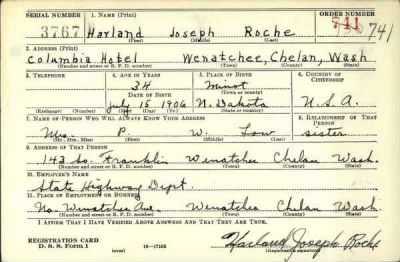 SERIAL NUMBER 1. NAME (Print) ORDER NUMBER
3767 Harland Joseph Roche 541 741
(First) (Middle) (Last)
2. ADDRESS (Print)
Columbia Hotel Wenatchee, Chelan, Wash
(Number and street or R. F. D. number) (Town) (County) (State)
3. TELEPHONE 4. AGE IN YEARS 5. PLACE OF BIRTH 6. COUNTRY OF CITIZENSHIP
34 Minot
DATE OF BIRTH (Town or county)
July 15 1906 N. Dakota U.S.A.
(Exchange) (Number) (Mo.) (Day) (Yr.) (State or country)
7. NAME OF PERSON WHO WILL ALWAYS KNOW YOUR ADDRESS 8. RELATIONSHIP OF THAT PERSON
Mrs. P. W. Low sister
(Mr., Mrs., Miss) (First) (Middle) (Last)
9. ADDRESS OF THAT PERSON
143 So. Franklin Wenatchee Chelan Wash.
(Number and street or R. F. D. number) (Town) (County) (State)
10. EMPLOYER'S NAME
State Highway Dept.
11. PLACE OF EMPLOYMENT OR BUSINESS
No. Wenatchee Ave. Wenatchee Chelan Wash.
(Number and street or R. F. D. number) (Town) (County) (State)
I AFFIRM THAT I HAVE VERIFIED ABOVE ANSWERS AND THAT THEY ARE TRUE.
REGISTRATION CARD
D. S. S. Form 1 (over) 16—17105 Harland Joseph Roche
(Registrant's signature)